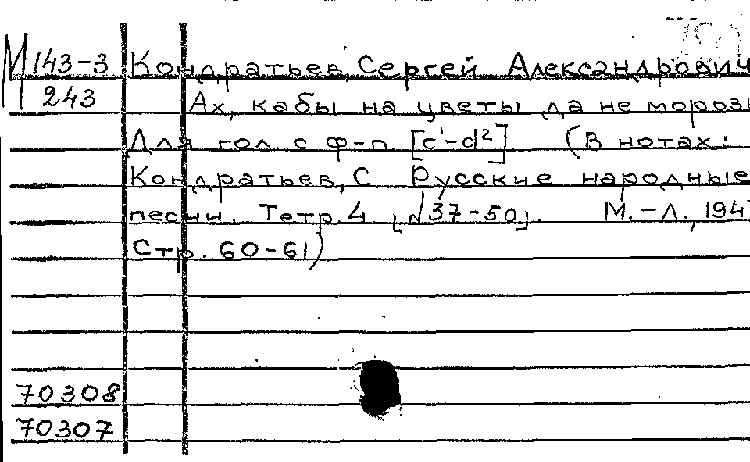 М 143-3 Кондратьев, Сергей Александрович
243 Ах, кабы на цветы да не мороз
Для гол. с ф-п. [c¹-d²] (В нотах:
Кондратьев, С. Русские народные
песни. Тетр. 4 [37-50]. М.-Л., 194
Стр. 60-61)
70308
70307